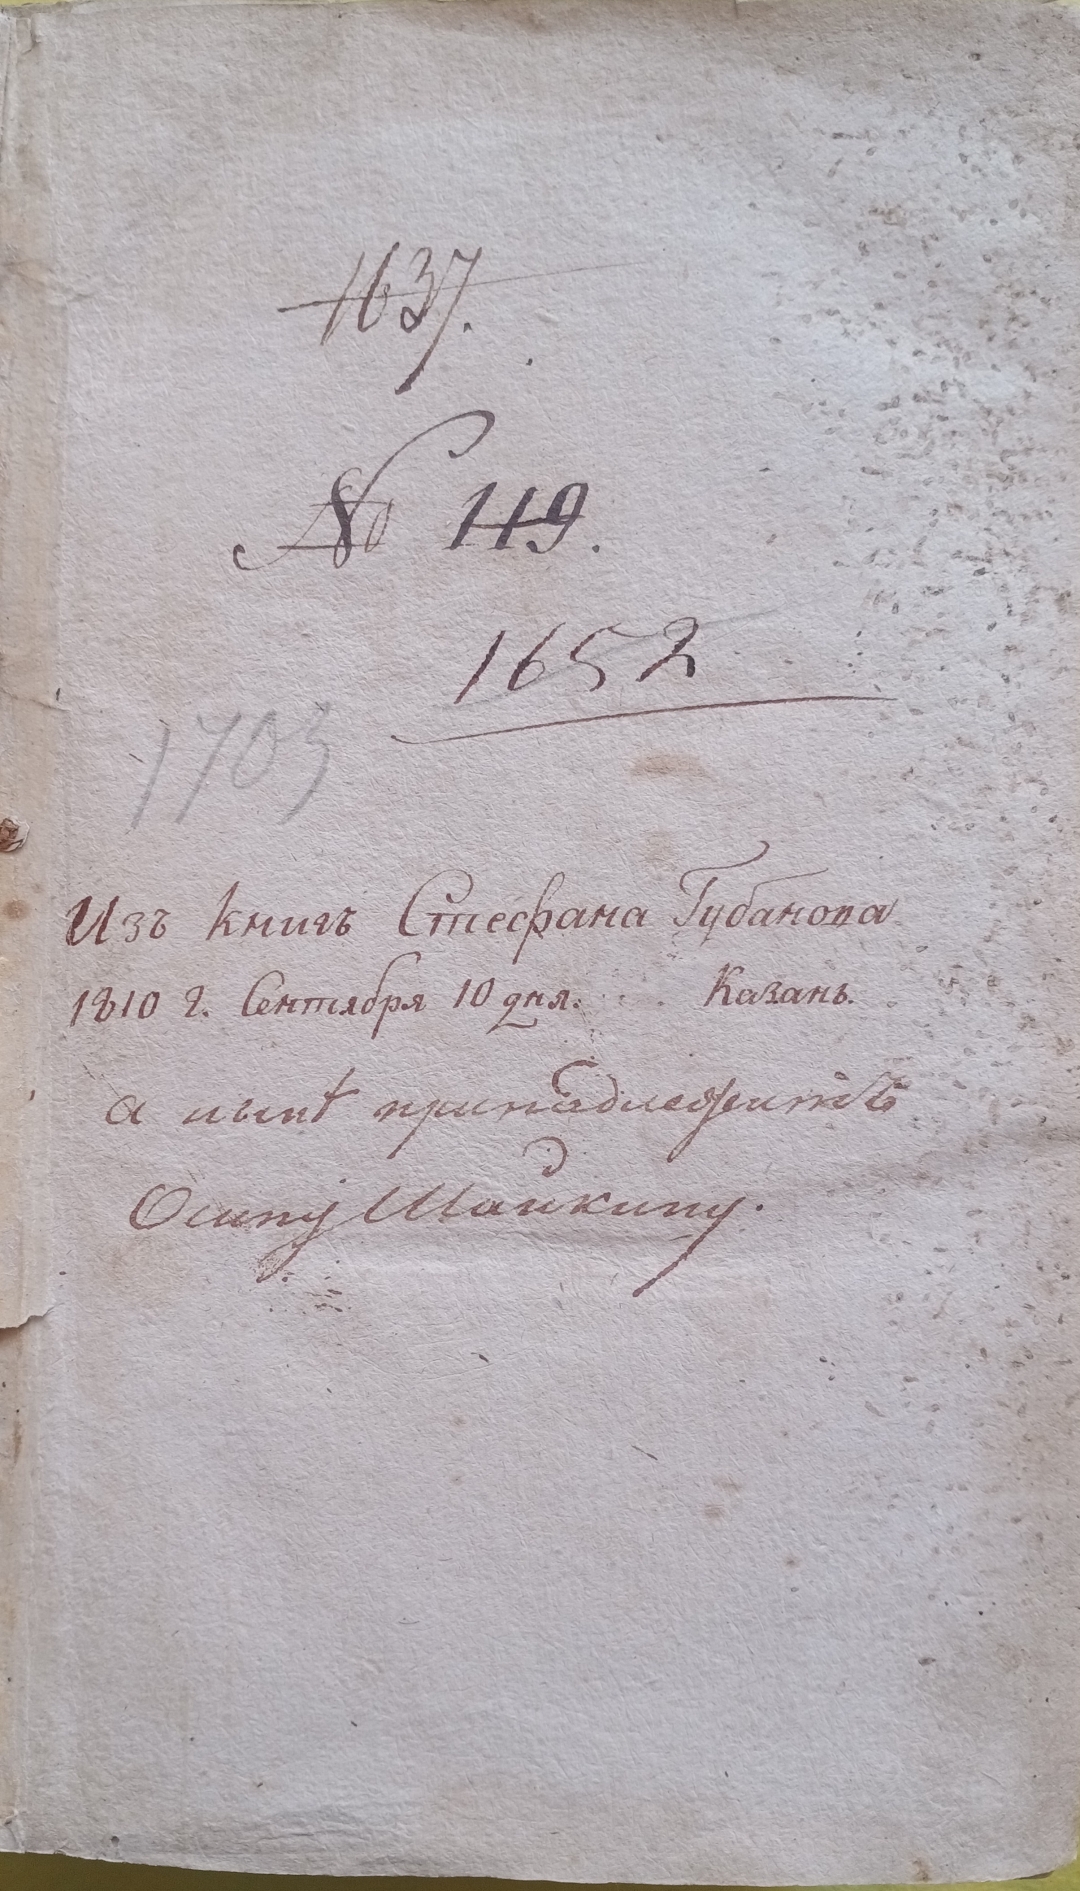 1637.
№ 119.
1652
1703
Изъ книгъ Стефана Губанова
1810 г. Сентября 10 дня. Казань.
а нынѣ принадлежитъ
Осипу Шайкину.